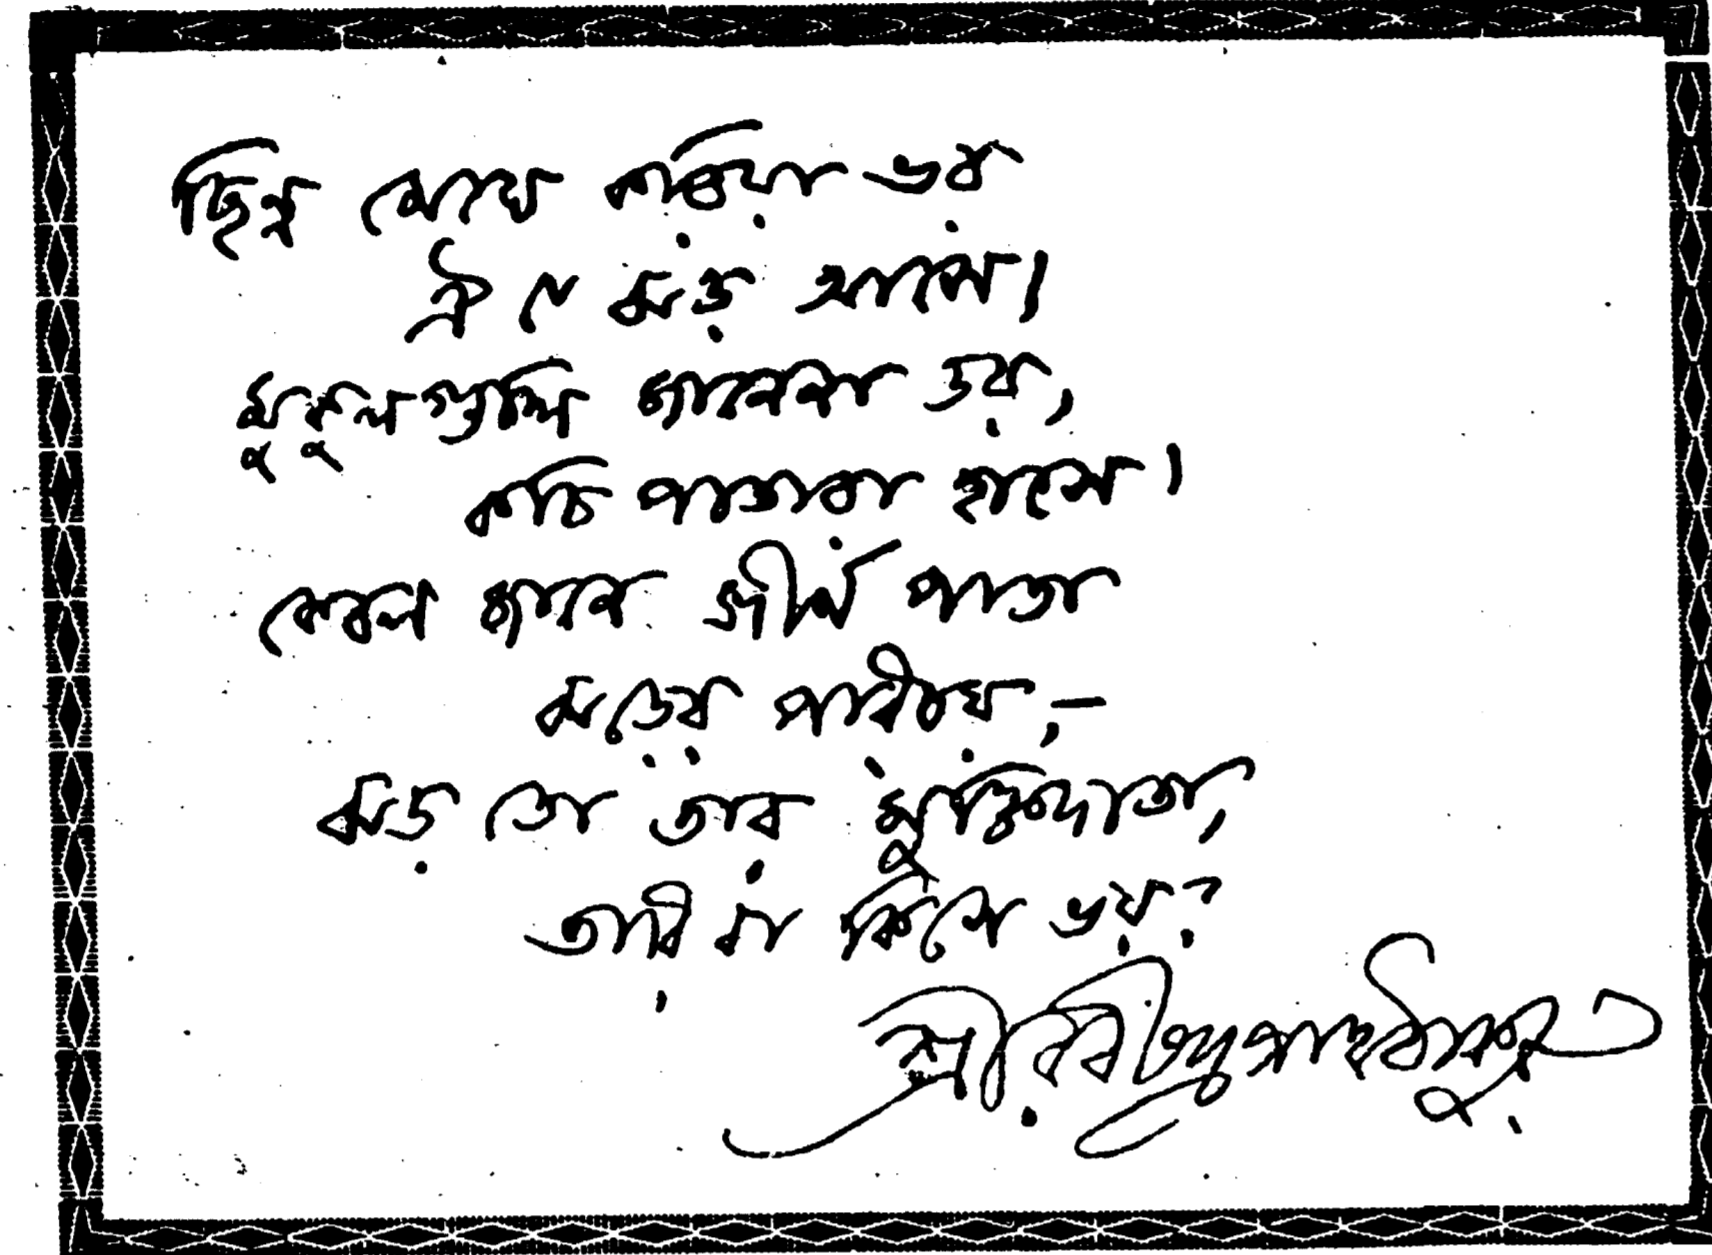 ছিন্ন মেঘে করিয়া ভর
ঐ যে ঝড় আসে।
মুকুলগুলি জানেনা ডর,
কচি পাতারা হাসে।
কেবল জানে জীর্ণ পাতা
ঝড়ের পরিচয়,—
ঝড় তো তার মুক্তিদাতা,
তারি বা কিসে ভয়?
শ্রীরবীন্দ্রনাথ ঠাকুর